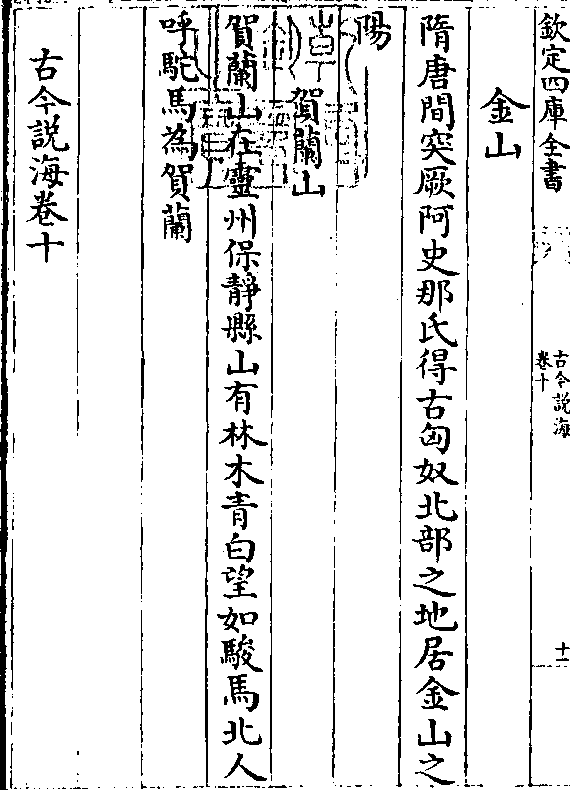 欽定四庫全書
古今説海
卷十
十一
金山
隋唐間突厥阿史那氏得古匈奴北部之地居金山之
陽
賀蘭山
賀蘭山在靈州保靜縣山有林木青白望如駿馬北人
呼駝馬為賀蘭
古今説海卷十